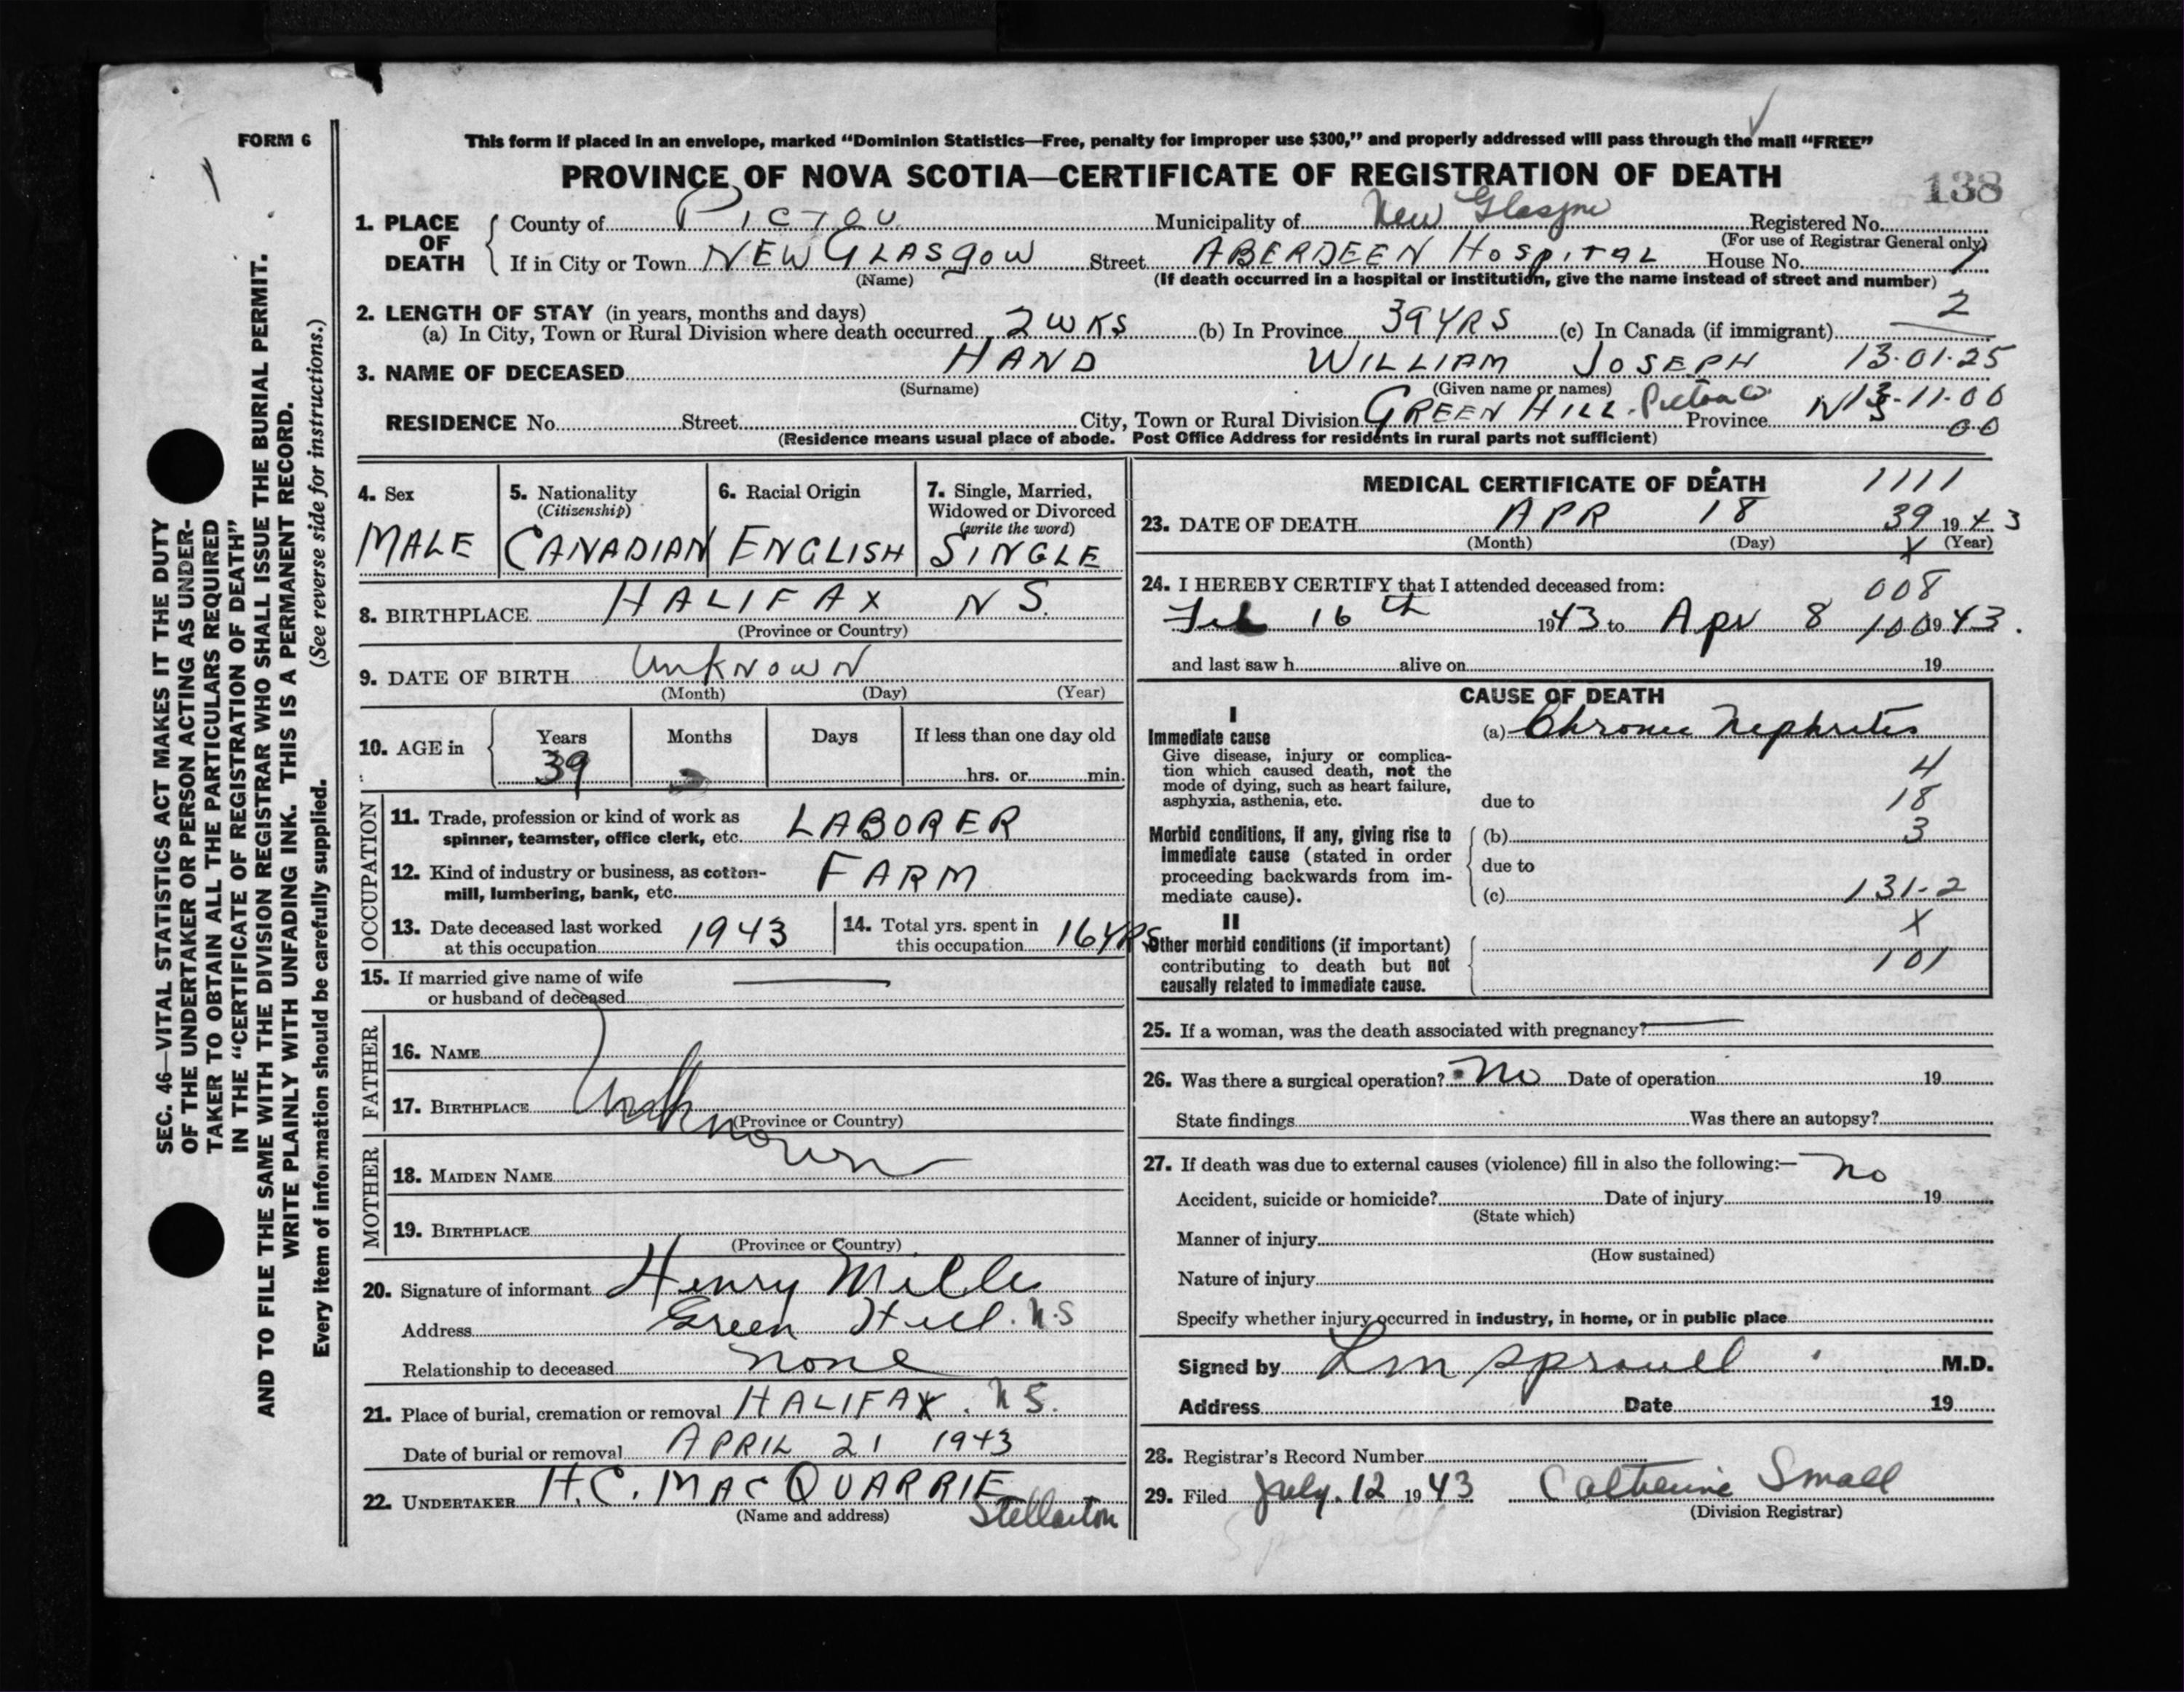 FORM 6
This form if placed in an envelope, marked “Dominion Statistics—Free, penalty for improper use $300,” and properly addressed will pass through the mail “FREE”
PROVINCE OF NOVA SCOTIA—CERTIFICATE OF REGISTRATION OF DEATH
138
1. PLACE OF DEATH
County of PICTOU Municipality of New Glasgow Registered No.
(For use of Registrar General only)
If in City or Town NEW GLASGOW Street ABERDEEN HOSPITAL House No. 1
(Name) (If death occurred in a hospital or institution, give the name instead of street and number)
2
2. LENGTH OF STAY (in years, months and days)
(a) In City, Town or Rural Division where death occurred 2 WKS (b) In Province 39 YRS (c) In Canada (if immigrant)
3. NAME OF DECEASED HAND WILLIAM JOSEPH 13-01-25
(Surname) (Given name or names)
RESIDENCE No. Street City, Town or Rural Division GREEN HILL. Pictou Co. Province N S 13-11-00
00
(Residence means usual place of abode. Post Office Address for residents in rural parts not sufficient)
4. Sex
MALE
5. Nationality
(Citizenship)
CANADIAN
6. Racial Origin
ENGLISH
7. Single, Married,
Widowed or Divorced
(write the word)
SINGLE
8. BIRTHPLACE HALIFAX N S.
(Province or Country)
9. DATE OF BIRTH UNKNOWN
(Month) (Day) (Year)
10. AGE in
Years Months Days If less than one day old
39 hrs. or min.
OCCUPATION
11. Trade, profession or kind of work as
spinner, teamster, office clerk, etc. LABORER
12. Kind of industry or business, as cotton-
mill, lumbering, bank, etc. FARM
13. Date deceased last worked
at this occupation 1943
14. Total yrs. spent in
this occupation 16 YRS
15. If married give name of wife
or husband of deceased
FATHER
16. NAME
17. BIRTHPLACE Unknown
(Province or Country)
MOTHER
18. MAIDEN NAME
19. BIRTHPLACE
(Province or Country)
20. Signature of informant Henry Mills
Address Green Hill. N.S
Relationship to deceased none
21. Place of burial, cremation or removal HALIFAX. N S.
Date of burial or removal APRIL 21 1943
22. UNDERTAKER H.C. MACQUARRIE
(Name and address) Stellarton
MEDICAL CERTIFICATE OF DEATH 1111
23. DATE OF DEATH APR 18 39 1943
(Month) (Day) X (Year)
24. I HEREBY CERTIFY that I attended deceased from:
008
Feb 16th 1943 to Apr 8 100 1943.
and last saw h alive on 19
CAUSE OF DEATH
I
Immediate cause
Give disease, injury or complica-
tion which caused death, not the
mode of dying, such as heart failure,
asphyxia, asthenia, etc.
(a) Chronic Nephritis
4
due to 18
Morbid conditions, if any, giving rise to
immediate cause (stated in order
proceeding backwards from im-
mediate cause).
(b) 3
due to
(c) 131-2
II X
Other morbid conditions (if important)
contributing to death but not
causally related to immediate cause.
101
25. If a woman, was the death associated with pregnancy?
26. Was there a surgical operation? No Date of operation 19
State findings Was there an autopsy?
27. If death was due to external causes (violence) fill in also the following:— No
Accident, suicide or homicide? Date of injury 19
(State which)
Manner of injury
(How sustained)
Nature of injury
Specify whether injury occurred in industry, in home, or in public place
Signed by L M Sproull M.D.
Address Date 19
28. Registrar's Record Number
29. Filed July. 12 1943 Catherine Small
(Division Registrar)
SEC. 46—VITAL STATISTICS ACT MAKES IT THE DUTY
OF THE UNDERTAKER OR PERSON ACTING AS UNDER-
TAKER TO OBTAIN ALL THE PARTICULARS REQUIRED
IN THE “CERTIFICATE OF REGISTRATION OF DEATH”
AND TO FILE THE SAME WITH THE DIVISION REGISTRAR WHO SHALL ISSUE THE BURIAL PERMIT.
WRITE PLAINLY WITH UNFADING INK. THIS IS A PERMANENT RECORD.
Every item of information should be carefully supplied. (See reverse side for instructions.)